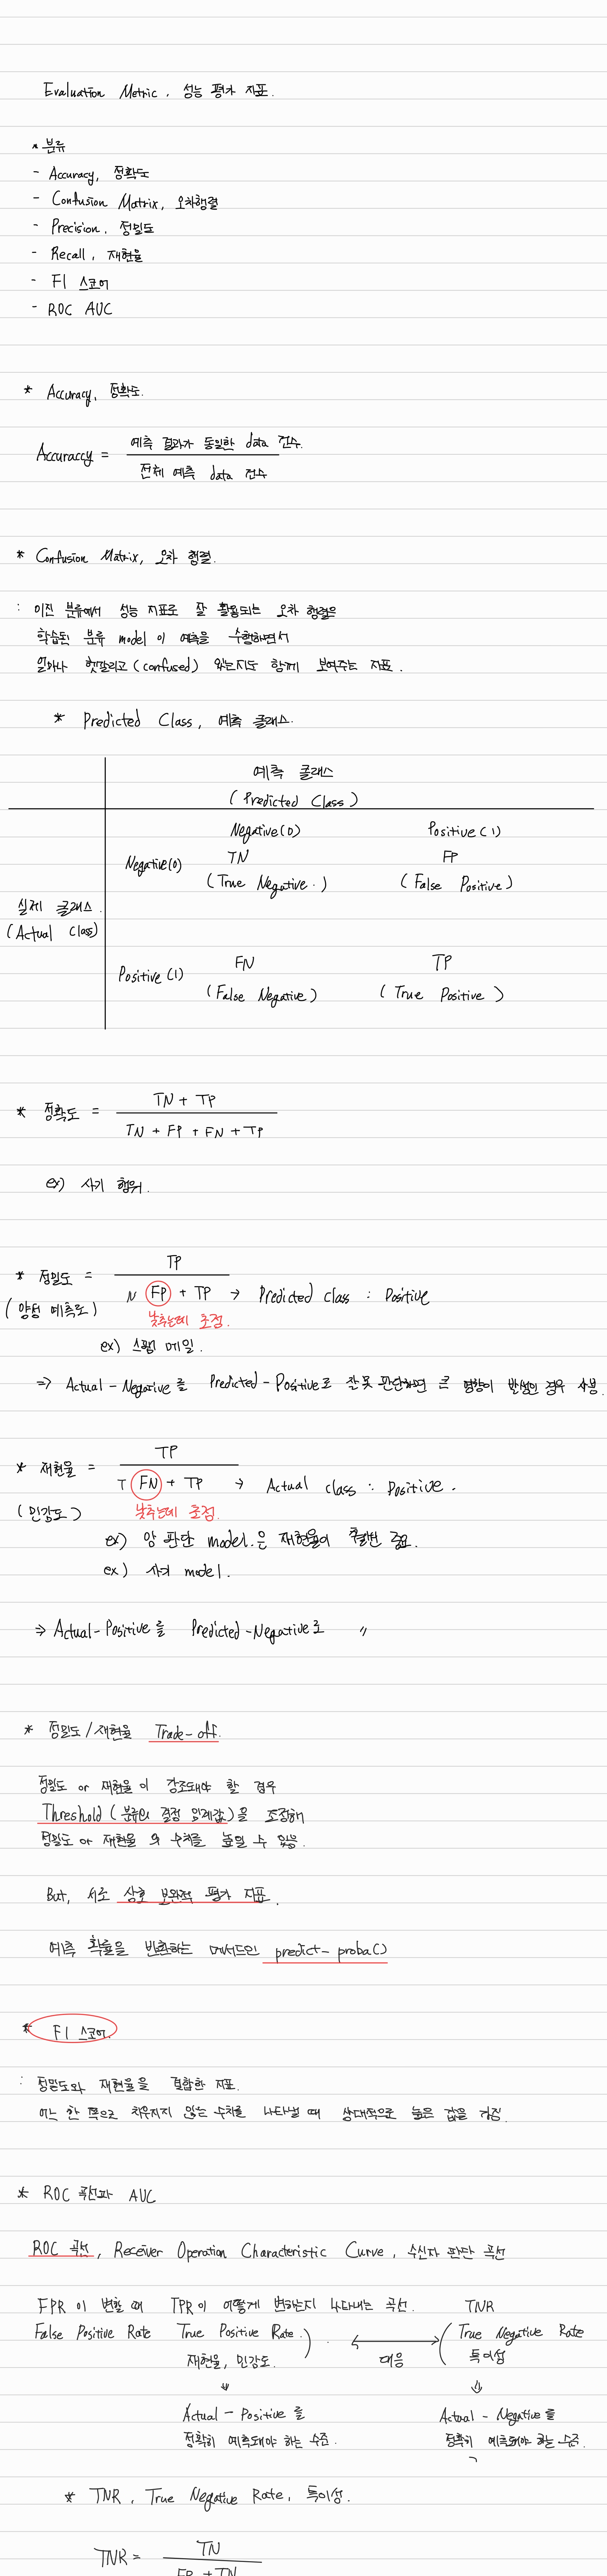 Evaluation Metric, 성능 평가 지표.
* 분류
- Accuracy, 정확도
- Confusion Matrix, 오차행렬
- Precision, 정밀도
- Recall, 재현율
- F1 스코어
- ROC AUC
* Accuracy, 정확도.
Accuraccy = 예측 결과가 동일한 data 건수.
전체 예측 data 건수
* Confusion Matrix, 오차 행렬.
: 이진 분류에서 성능 지표로 잘 활용되는 오차 행렬은
학습된 분류 model 이 예측을 수행하면서
얼마나 헷갈리고 (confused) 있는지도 함께 보여주는 지표.
* Predicted Class, 예측 클래스.
예측 클래스
(Predicted Class)
Negative(0) Positive(1)
Negative(0) TN FP
(True Negative.) (False Positive)
실제 클래스.
(Actual Class)
Positive(1) FN TP
(False Negative) (True Positive)
* 정확도 = TN + TP
TN + FP + FN + TP
ex) 사기 행위.
* 정밀도 = TP
N FP + TP → Predicted class : Positive
(양성 예측도) 낮추는데 초점.
ex) 스팸 메일.
⇒ Actual - Negative를 Predicted - Positive로 잘못 판단하면 큰 영향이 발생한 경우 사용.
* 재현율 = TP
T FN + TP → Actual class : Positive.
(민감도) 낮추는데 초점.
ex) 암 판단 model.은 재현율이 훨씬 중요.
ex) 사기 model.
⇒ Actual-Positive를 Predicted-Negative로 〃
* 정밀도/재현율 Trade-off.
정밀도 or 재현율 이 강조돼야 할 경우
Threshold (분류의 결정 임계값)을 조정해
정밀도 or 재현율 의 수치를 높일 수 있음.
But, 서로 상호 보완적 평가 지표.
예측 확률을 반환하는 메서드인 predict-proba()
* F1 스코어.
: 정밀도와 재현율을 결합한 지표.
어느 한 쪽으로 치우치지 않는 수치를 나타낼 때 상대적으로 높은 값을 가짐.
* ROC 곡선과 AUC
ROC 곡선, Receiver Operation Characteristic Curve, 수신자 판단 곡선
FPR 이 변할 때 TPR이 어떻게 변하는지 나타내는 곡선. TNR
False Positive Rate True Positive Rate.) . ↔ (True Negative Rate
재현율, 민감도. 대응 특이성
⇓ ⇓
Actual - Positive 를 Actual - Negative 를
정확히 예측돼야 하는 수준. 정확히 예측돼야 하는 수준.
* TNR, True Negative Rate, 특이성.
TNR = TN
FP + TN